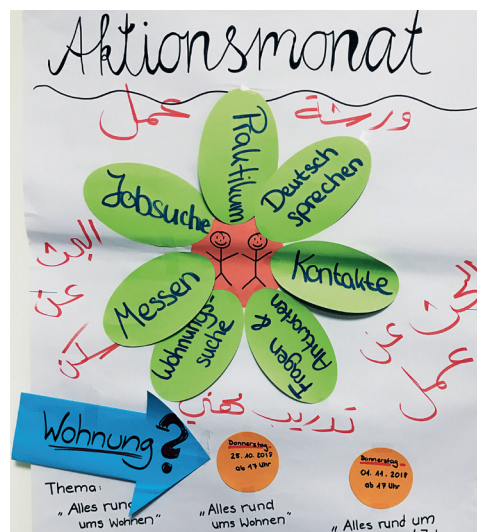 Aktionsmonat
ورشة عمل
Praktikum
Deutsch
sprechen
Jobsuche
Kontakte
Messen
Wohnungs-
suche
Fragen &
Antworten
البحث
عن
سكن
البحث
عن
عمل
تدريب مهني
Wohnung?
Donnerstag
25.10.2018
ab 17 Uhr
Donnerstag
01.11.2018
ab 17 Uhr
Thema:
„Alles rund
ums Wohnen"
„Alles rund
ums Wohnen"
„Alles rund um